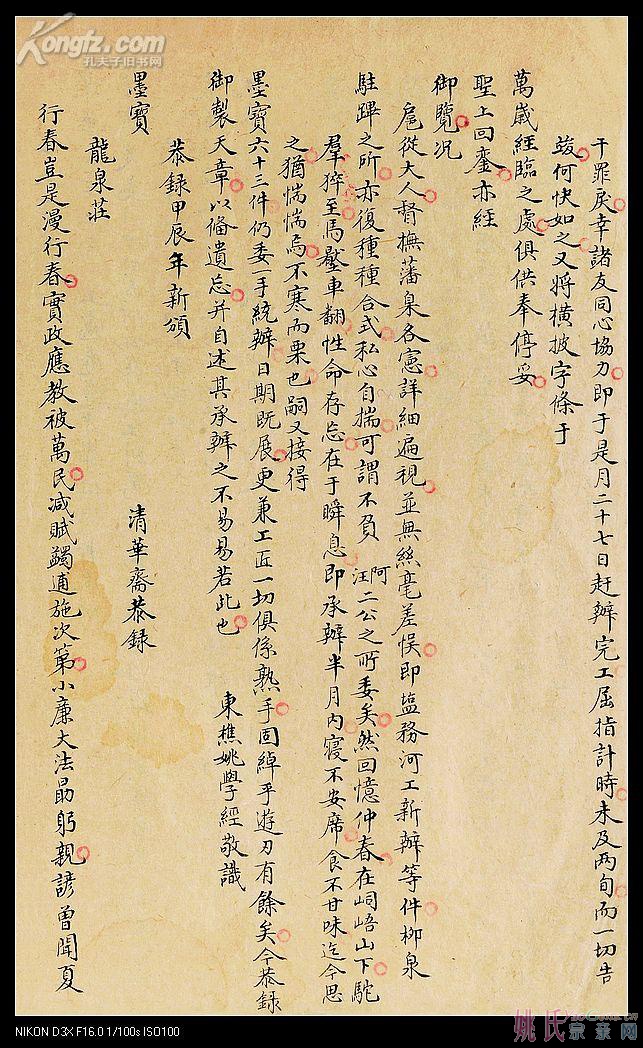 Kongfz.com
孔夫子旧书网
干罪戾幸諸友同心協力即于是月二十七日赶辦完工屈指計時未及两旬而一切告
竣何快如之又将橫披字條于
萬歲經臨之處俱供奉停妥
聖上回鑾亦經
御覽况
扈從大人督撫藩臬各憲詳細遍視並無絲毫差悮即盐務河工新辦等件柳泉
駐蹕之所亦復種種合式私心自揣可謂不負阿汪二公之所委矣然回憶仲春在峒峿山下駝
羣猝至馬驚車翻性命存忘在于瞬息即承辦半月内寝不安席食不甘味迄今思
之猶惴惴焉不寒而栗也嗣又接得
墨寶六十三件仍委一手統辦日期既展更兼工匠一切俱係熟手固綽乎遊刃有餘矣今恭録
御製天章以俻遺忘并自述其承辦之不易易若此也
東樵姚學經敬識
恭録甲辰年新頒
墨寶
清華齋恭録
龍泉莊
行春豈是漫行春實政應教被萬民减賦蠲逋施次第小廉大法勗躬親諺曾聞夏
NIKON D3X F16.0 1/100s ISO100
姚氏宗亲网